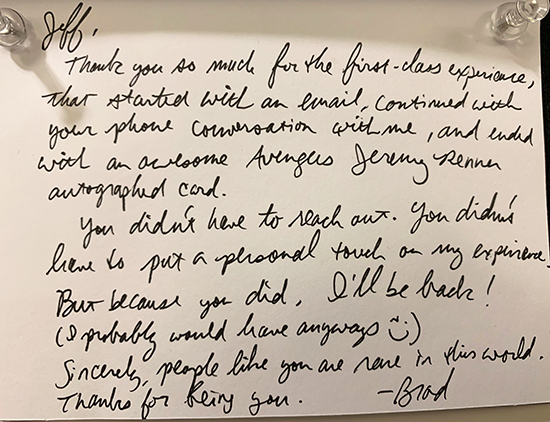 Jeff,
Thank you so much for the first-class experience,
that started with an email, continued with
your phone conversation with me, and ended
with an awesome Avengers Jeremy Renner
autographed card.
You didn't have to reach out. You didn't
have to put a personal touch on my experience.
But because you did, I'll be back!
(I probably would have anyways :))
Sincerely, people like you are rare in this world.
Thanks for being you. -Brad